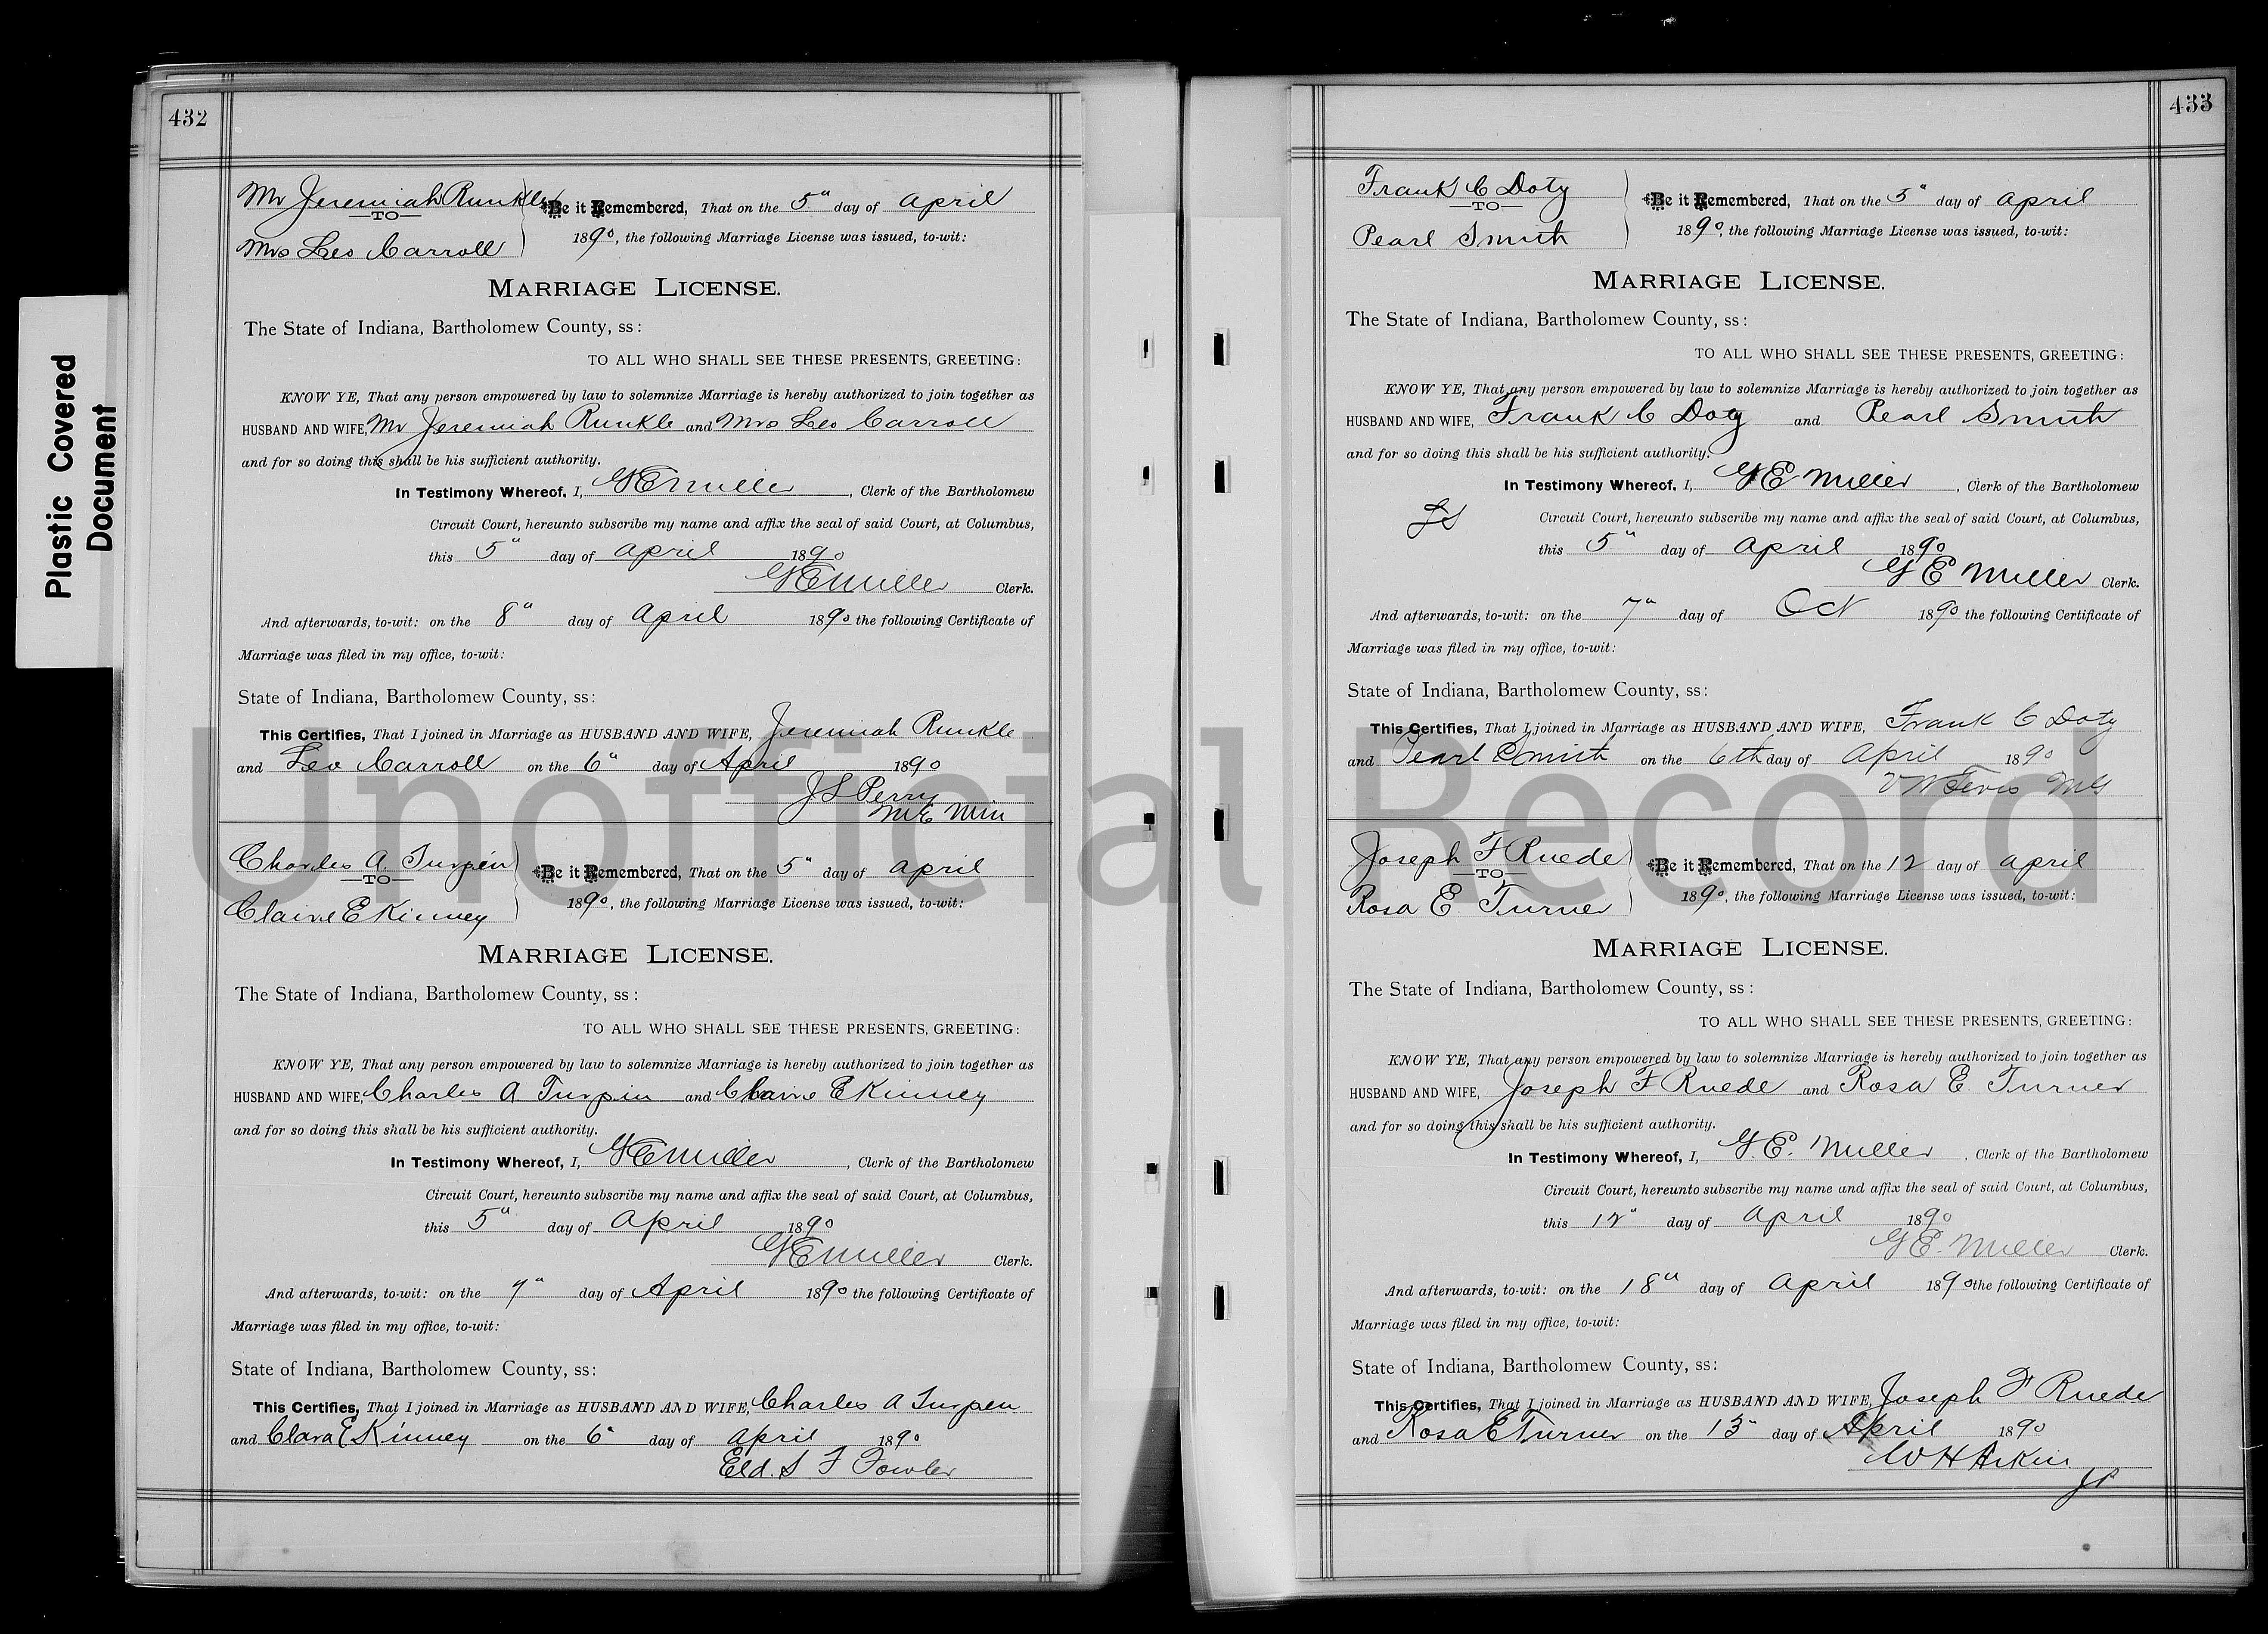 Plastic Covered
Document
432
Mr Jeremiah Runkle
TO
Mrs Leo Carroll
Be it Remembered, That on the 5" day of April
1890, the following Marriage License was issued, to-wit:
MARRIAGE LICENSE.
The State of Indiana, Bartholomew County, ss:
TO ALL WHO SHALL SEE THESE PRESENTS, GREETING:
KNOW YE, That any person empowered by law to solemnize Marriage is hereby authorized to join together as
HUSBAND AND WIFE, Mr Jeremiah Runkle and Mrs Leo Carroll
and for so doing this shall be his sufficient authority.
In Testimony Whereof, I, G E Miller, Clerk of the Bartholomew
Circuit Court, hereunto subscribe my name and affix the seal of said Court, at Columbus,
this 5" day of April 1890
G E Miller Clerk.
And afterwards, to-wit: on the 8" day of April 1890 the following Certificate of
Marriage was filed in my office, to-wit:
State of Indiana, Bartholomew County, ss:
This Certifies, That I joined in Marriage as HUSBAND AND WIFE, Jeremiah Runkle
and Leo Carroll on the 6" day of April 1890
J S Perry
M E Min
Charles A. Turpen
TO
Claire E Kinney
Be it Remembered, That on the 5" day of April
1890, the following Marriage License was issued, to-wit:
MARRIAGE LICENSE.
The State of Indiana, Bartholomew County, ss:
TO ALL WHO SHALL SEE THESE PRESENTS, GREETING:
KNOW YE, That any person empowered by law to solemnize Marriage is hereby authorized to join together as
HUSBAND AND WIFE, Charles A Turpin and Claire E Kinney
and for so doing this shall be his sufficient authority.
In Testimony Whereof, I, G E Miller, Clerk of the Bartholomew
Circuit Court, hereunto subscribe my name and affix the seal of said Court, at Columbus,
this 5" day of April 1890
G E Miller Clerk.
And afterwards, to-wit: on the 7" day of April 1890 the following Certificate of
Marriage was filed in my office, to-wit:
State of Indiana, Bartholomew County, ss:
This Certifies, That I joined in Marriage as HUSBAND AND WIFE, Charles A Turpen
and Clara E Kinney on the 6" day of April 1890
Eld. S F Fowler
433
Frank C Doty
TO
Pearl Smith
Be it Remembered, That on the 5" day of April
1890, the following Marriage License was issued, to-wit:
MARRIAGE LICENSE.
The State of Indiana, Bartholomew County, ss:
TO ALL WHO SHALL SEE THESE PRESENTS, GREETING:
KNOW YE, That any person empowered by law to solemnize Marriage is hereby authorized to join together as
HUSBAND AND WIFE, Frank C Doty and Pearl Smith
and for so doing this shall be his sufficient authority.
In Testimony Whereof, I, G E Miller, Clerk of the Bartholomew
LS
Circuit Court, hereunto subscribe my name and affix the seal of said Court, at Columbus,
this 5" day of April 1890
G E Miller Clerk.
And afterwards, to-wit: on the 7" day of Oct 1890 the following Certificate of
Marriage was filed in my office, to-wit:
State of Indiana, Bartholomew County, ss:
This Certifies, That I joined in Marriage as HUSBAND AND WIFE, Frank C Doty
and Pearl Smith on the 6th day of April 1890
V W Tevis MG
Joseph F Ruede
TO
Rosa E. Turner
Be it Remembered, That on the 12 day of April
1890, the following Marriage License was issued, to-wit:
MARRIAGE LICENSE.
The State of Indiana, Bartholomew County, ss:
TO ALL WHO SHALL SEE THESE PRESENTS, GREETING:
KNOW YE, That any person empowered by law to solemnize Marriage is hereby authorized to join together as
HUSBAND AND WIFE, Joseph F Ruede and Rosa E. Turner
and for so doing this shall be his sufficient authority.
In Testimony Whereof, I, G. E. Miller, Clerk of the Bartholomew
Circuit Court, hereunto subscribe my name and affix the seal of said Court, at Columbus,
this 12" day of April 1890
G E. Miller Clerk.
And afterwards, to-wit: on the 18" day of April 1890 the following Certificate of
Marriage was filed in my office, to-wit:
State of Indiana, Bartholomew County, ss:
This Certifies, That I joined in Marriage as HUSBAND AND WIFE, Joseph F Ruede
and Rosa E Turner on the 13" day of April 1890
W H Arkin
JP
Unofficial Record